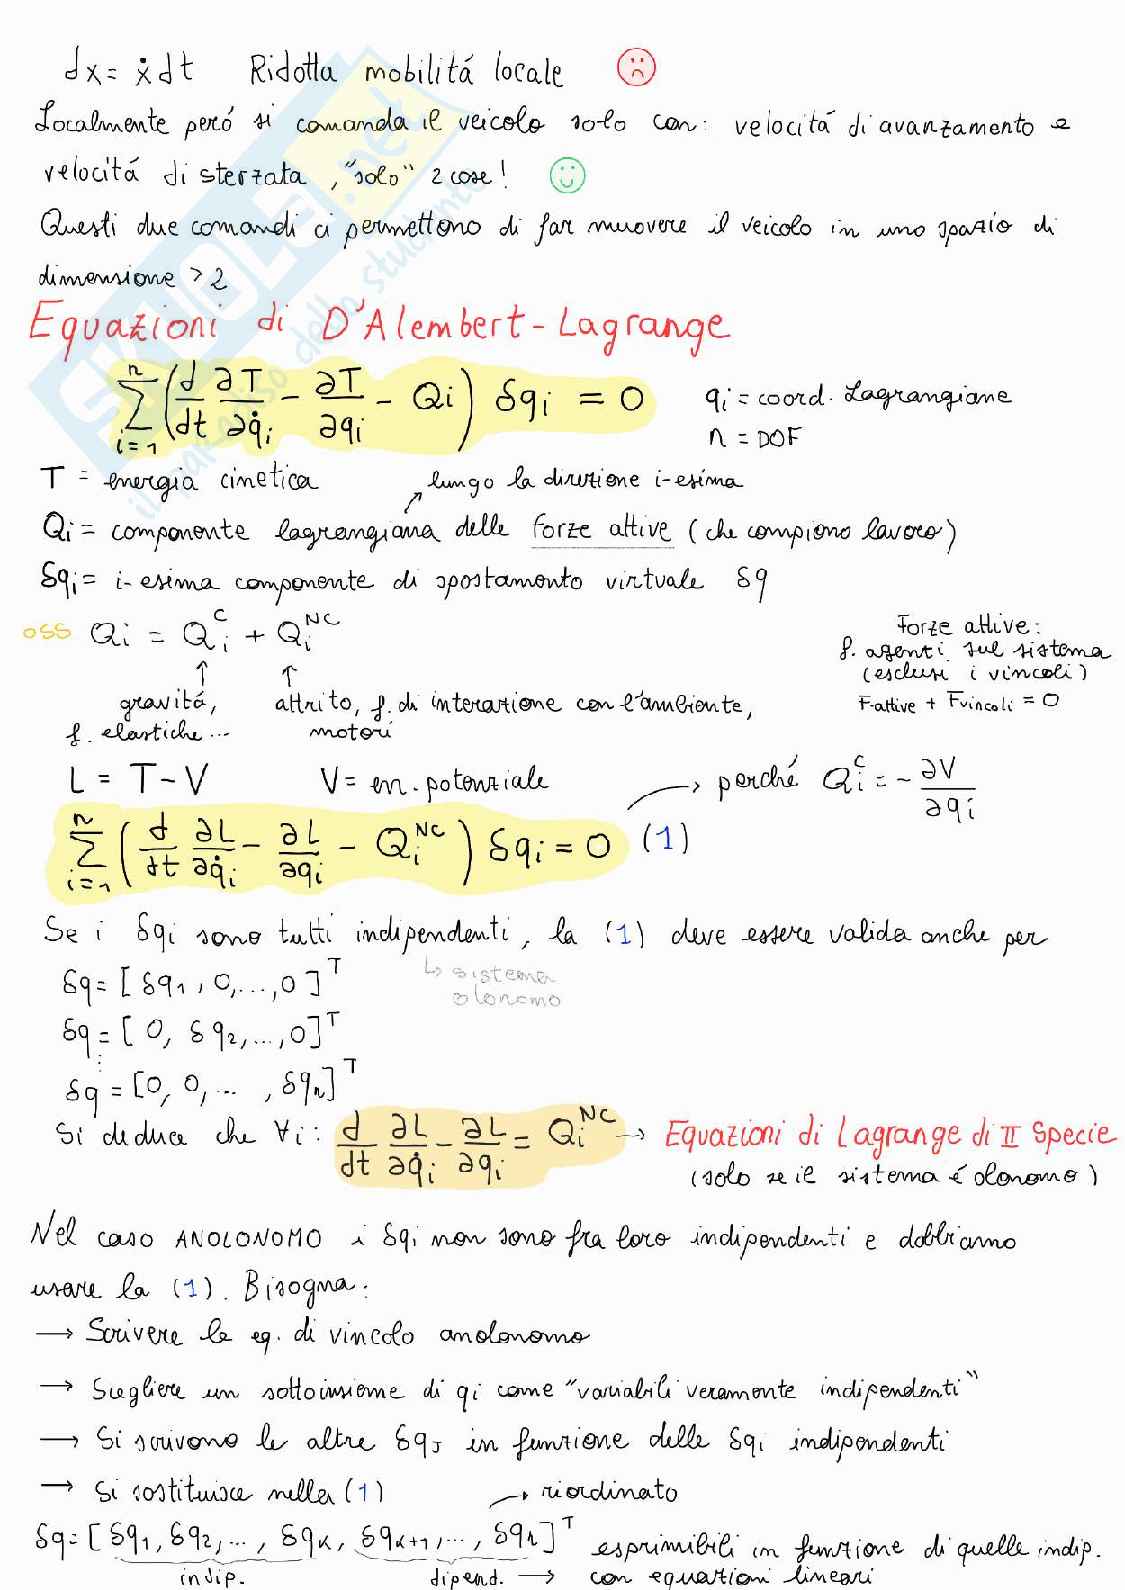 dx = ẋ dt Ridotta mobilitá locale
Localmente peró si comanda il veicolo solo con: velocitá di avanzamento e
velocitá di sterzata, "solo" 2 cose!
Questi due comandi ci permettono di far muovere il veicolo in uno spazio di
dimensione > 2
Equazioni di D'Alembert-Lagrange
∑_{i=1}^{n} (d/dt ∂T/∂q̇i − ∂T/∂qi − Qi) δqi = 0 qi = coord. Lagrangiane
n = DOF
T = energia cinetica lungo la direzione i-esima
Qi = componente lagrangiana delle forze attive (che compiono lavoro)
δqi = i-esima componente di spostamento virtuale δq
oss Qi = Qi^C + Qi^NC Forze attive:
f. agenti sul sistema
(esclusi i vincoli)
Fattive + Fvincoli = 0
gravitá, attrito, f. di interazione con l'ambiente,
f. elastiche... motori
L = T − V V = en. potenziale → perché Qi^C = −∂V/∂qi
∑_{i=1}^{n} (d/dt ∂L/∂q̇i − ∂L/∂qi − Qi^NC) δqi = 0 (1)
Se i δqi sono tutti indipendenti, la (1) deve essere valida anche per
↳ sistema
olonomo
δq = [δq1, 0, ..., 0]^T
δq = [0, δq2, ..., 0]^T
⋮
δq = [0, 0, ..., δqn]^T
Si deduce che ∀i: d/dt ∂L/∂q̇i − ∂L/∂qi = Qi^NC → Equazioni di Lagrange di II Specie
(solo se il sistema é olonomo)
Nel caso ANOLONOMO i δqi non sono fra loro indipendenti e dobbiamo
usare la (1). Bisogna:
→ Scrivere le eq. di vincolo anolonomo
→ Scegliere un sottoinsieme di qi come "variabili veramente indipendenti"
→ Si scrivono le altre δqj in funzione delle δqi indipendenti
→ Si sostituisce nella (1) → riordinato
δq = [δq1, δq2, ..., δqk, δqk+1, ..., δqn]^T esprimibili in funzione di quelle indip.
indip. dipend. → con equazioni lineari
SKUOLA.net
il paradiso dello studente